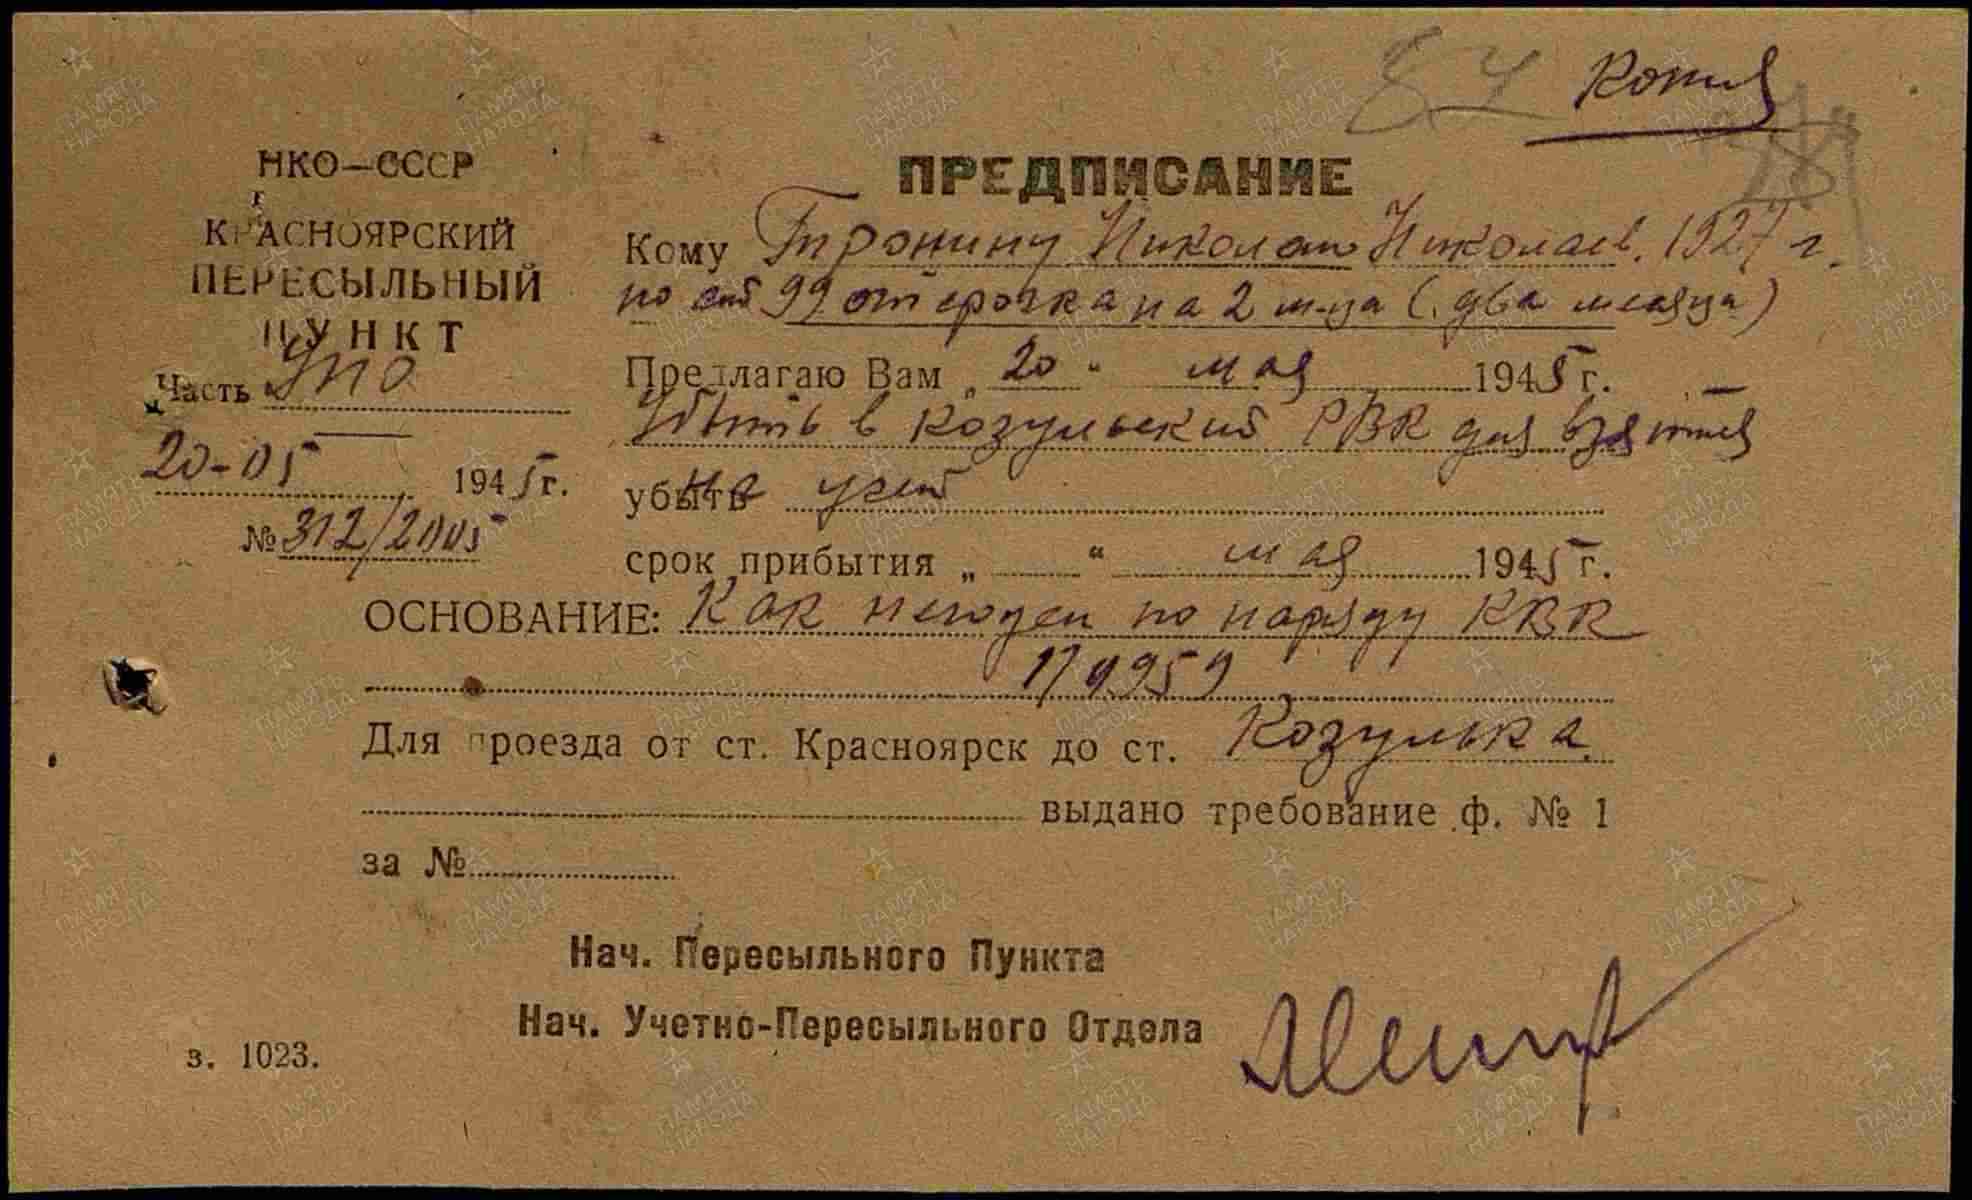 Копия
НКО—СССР
КРАСНОЯРСКИЙ
ПЕРЕСЫЛЬНЫЙ
ПУНКТ
Часть УПО
20-05 1945 г.
№ 312/2005
ПРЕДПИСАНИЕ
Кому Тронину Николаю Николаев. 1927 г.
по 99 отсрочка на 2 м-ца (два месяца)
Предлагаю Вам „20" мая 1945 г.
Убыть в Козульский РВК для взятия
убыть на учет
срок прибытия „ " мая 1945 г.
ОСНОВАНИЕ: Как негоден по наряду КВК
1/0959
Для проезда от ст. Красноярск до ст. Козулька
выдано требование ф. № 1
за №
Нач. Пересыльного Пункта
Нач. Учетно-Пересыльного Отдела
з. 1023.
ПАМЯТЬ НАРОДА